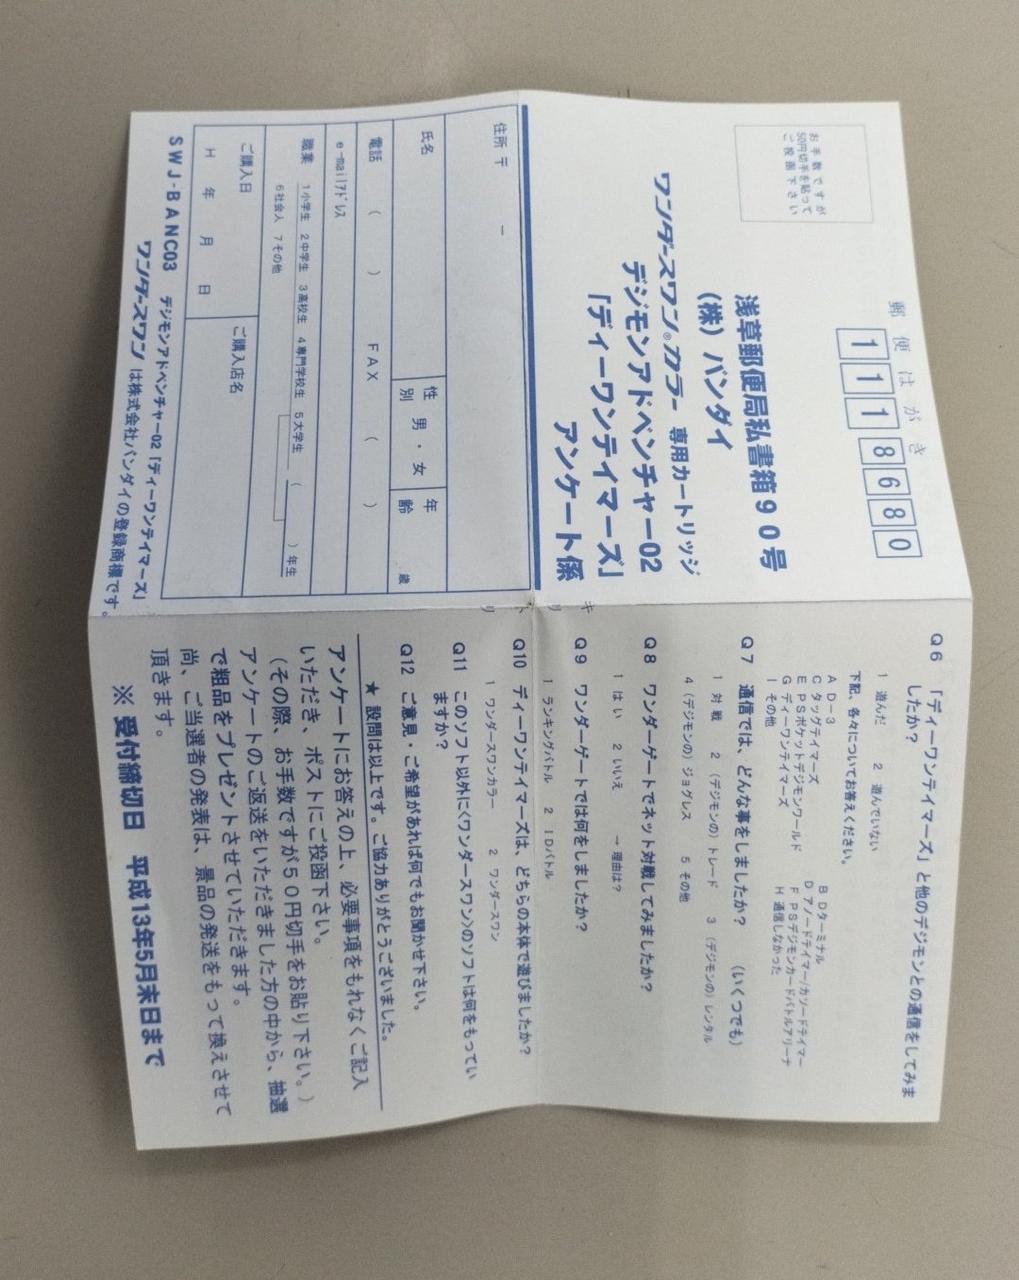 郵便はがき
1118680
お手数ですが
50円切手を貼って
ご投函下さい
浅草郵便局私書箱90号
(株)バンダイ
ワンダースワン®カラー 専用カートリッジ
デジモンアドベンチャー02
「ディーワンテイマーズ」
アンケート係
住所 〒 ー
氏名
性別 男・女 年齢 歳
電話 ( ) FAX ( )
e-mailアドレス
職業 1小学生 2中学生 3高校生 4専門学校生 5大学生 ( )年生
6社会人 7その他
ご購入日
H 年 月 日
ご購入店名
SWJ-BANC03 デジモンアドベンチャー02「ディーワンテイマーズ」
ワンダースワン は株式会社バンダイの登録商標です。
キリトリ
Q6 「ディーワンテイマーズ」と他のデジモンとの通信をしてみま
したか?
1 遊んだ 2 遊んでいない
下記、各々についてお答えください。
A D-3 B Dターミナル
C タッグテイマーズ D アノードテイマー/カソードテイマー
E PSポケットデジモンワールド F PSデジモンカードバトルアリーナ
G ディーワンテイマーズ H 通信しなかった
I その他
Q7 通信では、どんな事をしましたか? (いくつでも)
1 対戦 2 (デジモンの)トレード 3 (デジモンの)レンタル
4 (デジモンの)ジョグレス 5 その他
Q8 ワンダーゲートでネット対戦してみましたか?
1 はい 2 いいえ → 理由は?
Q9 ワンダーゲートでは何をしましたか?
1 ランキングバトル 2 IDバトル
Q10 ディーワンテイマーズは、どちらの本体で遊びましたか?
1 ワンダースワンカラー 2 ワンダースワン
Q11 このソフト以外に<ワンダースワン>のソフトは何をもってい
ますか?
Q12 ご意見・ご希望があれば何でもお聞かせ下さい。
★ 設問は以上です。ご協力ありがとうございました。
アンケートにお答えの上、必要事項をもれなくご記入
いただき、ポストにご投函下さい。
(その際、お手数ですが50円切手をお貼り下さい。)
アンケートのご返送をいただきました方の中から、抽選
で粗品をプレゼントさせていただきます。
尚、ご当選者の発表は、景品の発送をもって換えさせて
頂きます。
※ 受付締切日 平成13年5月末日まで